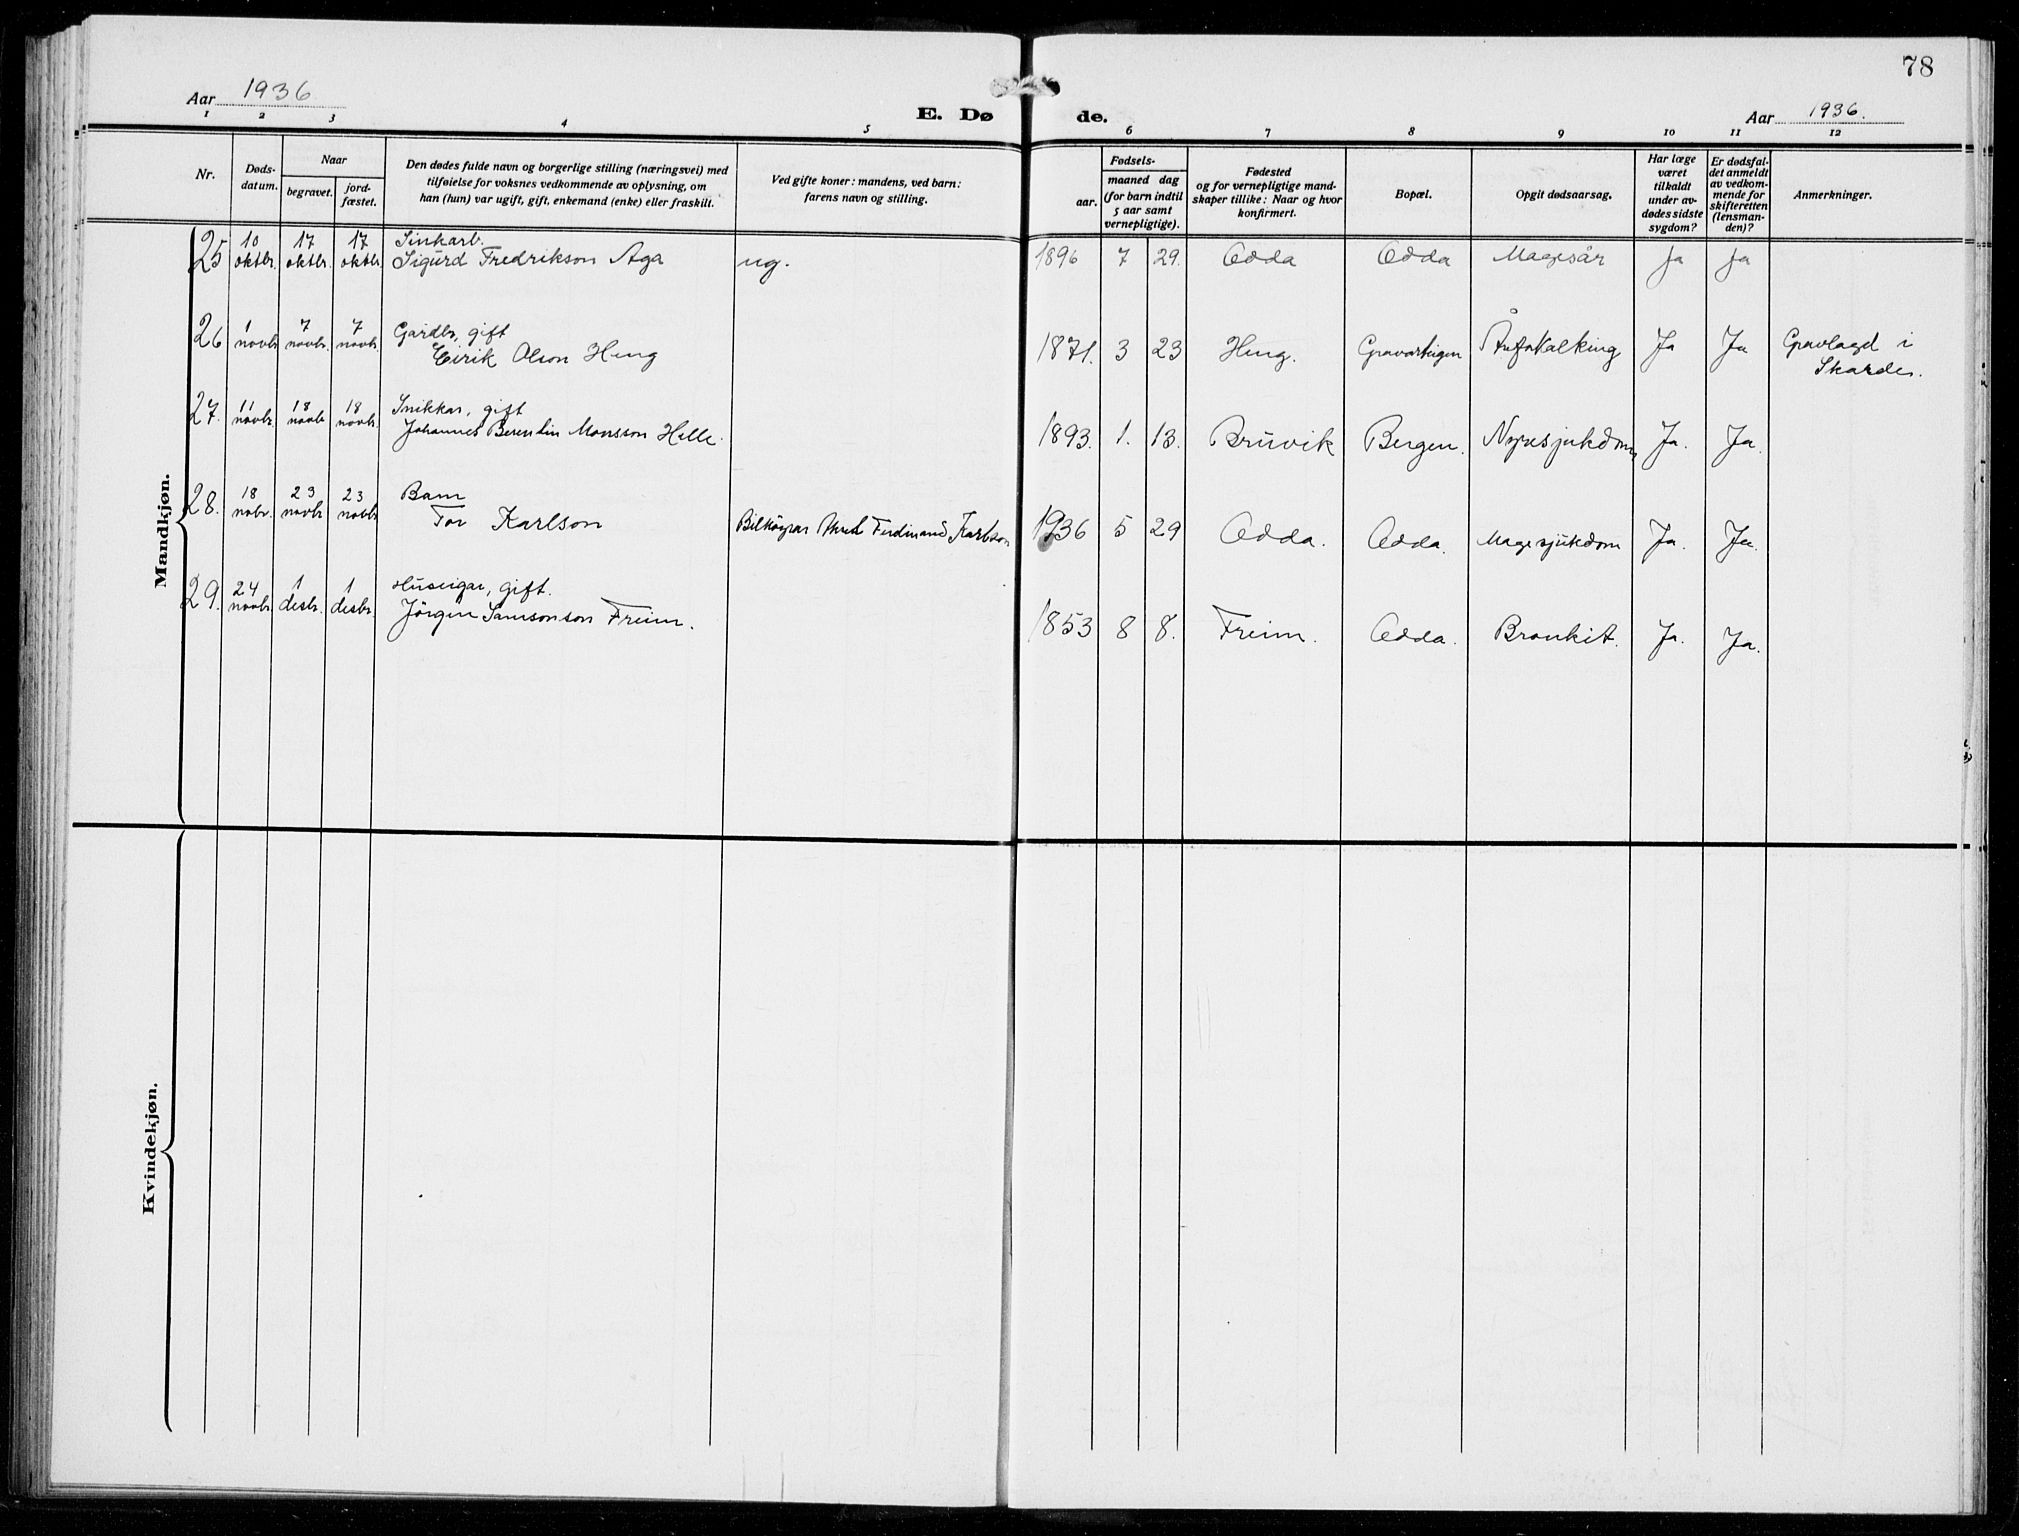 78
Aar 1936
E. Dø
de.
Aar 1936.
1 2 3 4 5 6 7 8 9 10 11 12
Nr.
Døds-
datum.
Naar
begravet.
jord-
fæstet.
Den dødes fulde navn og borgerlige stilling (næringsvei) med
tilføielse for voksnes vedkommende av oplysning, om
han (hun) var ugift, gift, enkemand (enke) eller fraskilt.
Ved gifte koner: mandens, ved barn:
farens navn og stilling.
Fødsels-
aar.
maaned dag
(for barn indtil
5 aar samt
vernepligtige).
Fødested
og for vernepligtige mand-
skaper tillike: Naar og hvor
konfirmert.
Bopæl.
Opgit dødsaarsag.
Har læge
været
tilkaldt
under av-
dødes sidste
sygdom?
Er dødsfal-
det anmeldt
av vedkom-
mende for
skifteretten
(lensman-
den)?
Anmerkninger.
Mandkjøn.
25 10 oktbr. 17 oktbr. 17 oktbr. Sinkarb.
Sigurd Fredrikson Aga ug. 1896 7 29. Odda Odda Magesår Ja Ja
26 1 novbr. 7 novbr. 7 novbr. Gardbr, gift
Eirik Olson Heng 1871. 3 23 Heng. Ja Ja Gravlagd i
Skarde.
27. 11 novbr. 18 novbr 18 novbr. Snikkar, gift
Johannes Berentin Monsson Helle. 1893. 1. 13. Bruvik Bergen. Nyresjukdom Ja. Ja.
28. 18 nobr. 23 novbr 23 novbr. Barn
Tor Karlson Ferdinand Karlson 1936 5 29 Odda. Odda. Magesjukdom Ja. Ja.
29. 24 novbr. 1 desbr. 1 desbr. Huseigar, gift.
Jörgen Samsonson Freim. 1853 8 8. Freim. Odda. Bronkit. Ja. Ja.
Kvindekjøn.